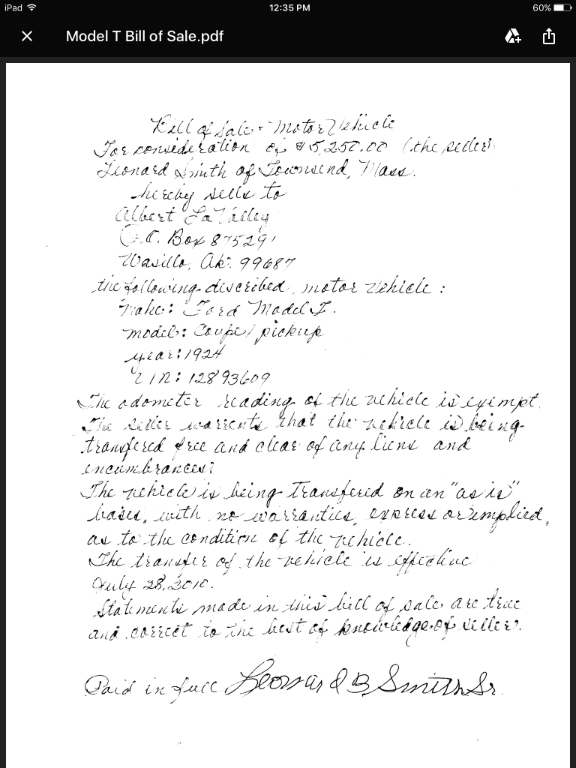 iPad
12:35 PM
60%
Model T Bill of Sale.pdf
Bill of Sale - Motor Vehicle
For consideration of $5,250.00 (the seller)
Leonard Smith of Townsend, Mass.
hereby sells to
Albert LaValley
P.O. Box 875291
Wasilla, Ak. 99687
the following described motor vehicle:
make: Ford Model T.
model: Coupe/pickup
year: 1924
VIN: 12893609
The odometer reading of the vehicle is exempt.
The seller warrents that the vehicle is being
transfered free and clear of any liens and
incumbrances.
The vehicle is being transfered on an "as is"
basis, with no warranties, express or implied,
as to the condition of the vehicle.
The transfer of the vehicle is effective
July 28, 2010.
Statements made in this bill of sale are true
and correct to the best of knowledge of seller.
Paid in full Leonard B Smith Sr.